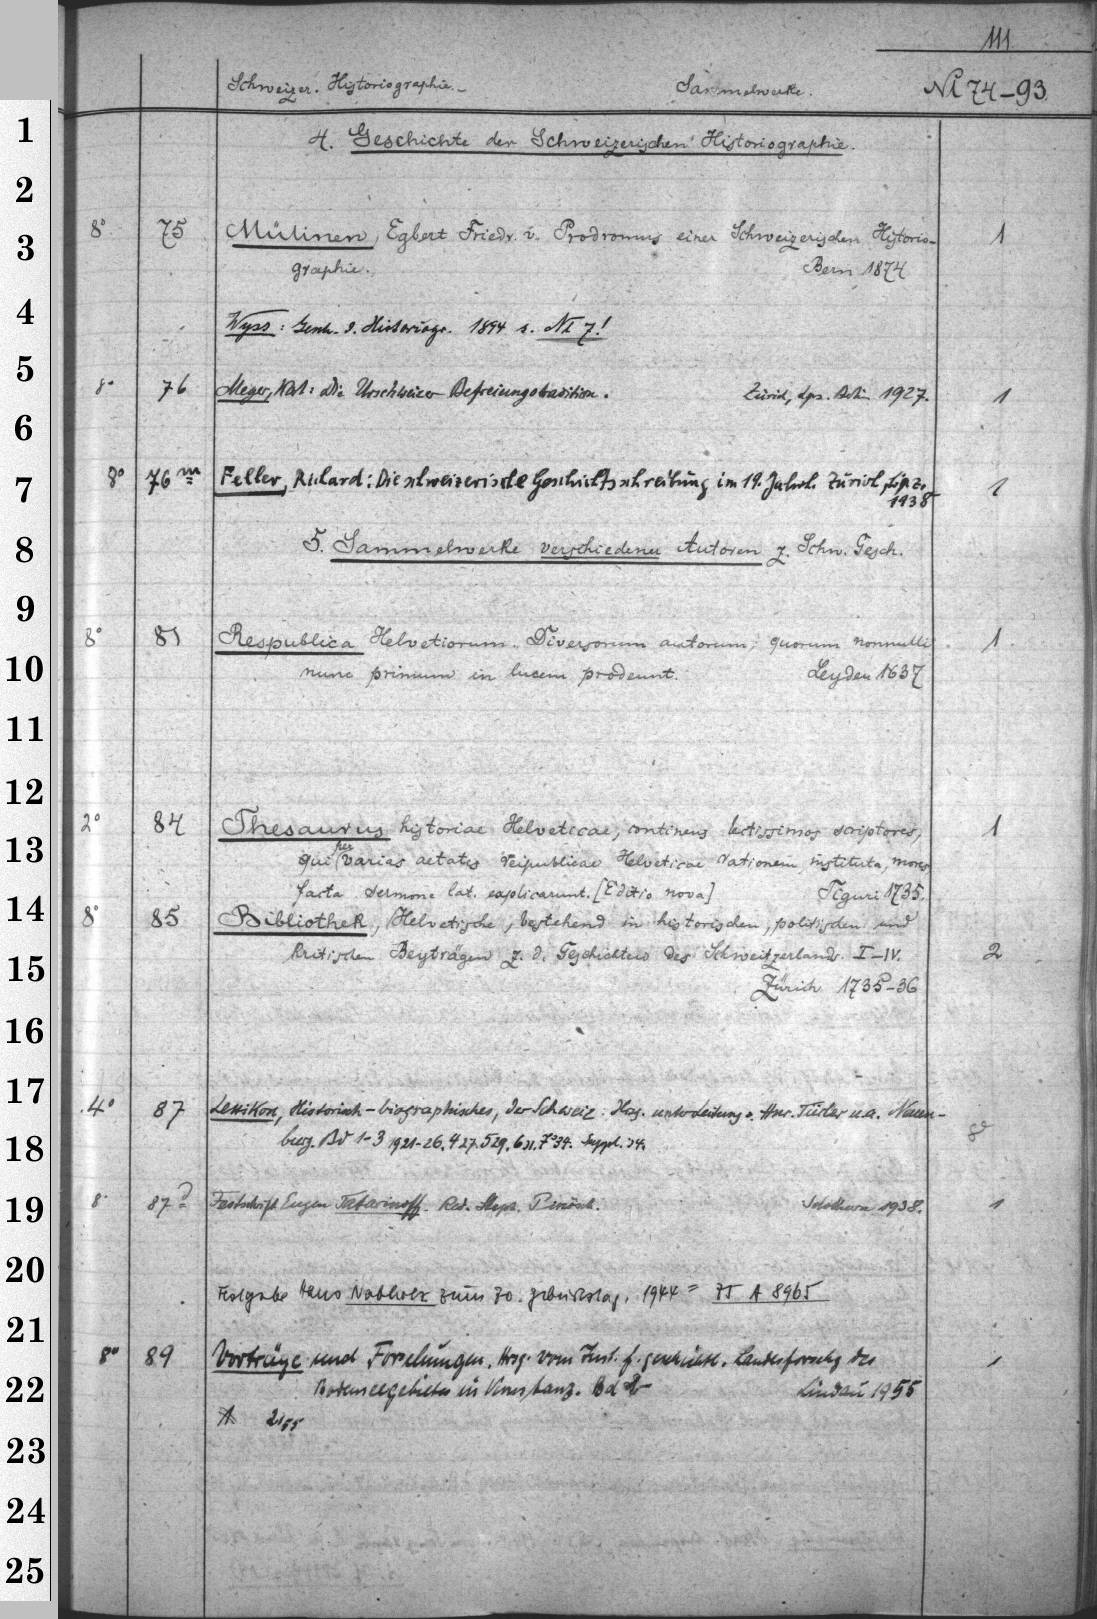 111
Schweizer. Historiographie. Sammelwerke. NI 74-93
1
4. Geschichte der Schweizerischen Historiographie.
2
3
8° 75 Mülinen, Egbert Friedr. v. Prodromus einer Schweizerischen Historio- 1
graphie. Bern 1874
4
Wyss: Gesch. d. Historiogr. 1894 s. NI 7!
5
8° 76 Meyer, Karl: Die Urschweizer Befreiungstradition. Zürich, Lpz. Berlin 1927. 1
6
7
8° 76m Feller, Richard: Die schweizerische Geschichtsschreibung im 19. Jahrh. Zürich, Lpz. 1
1938
8
5. Sammelwerke verschiedener Autoren z. Schw. Gesch.
9
8° 81 Respublica Helvetiorum. Diversorum autorum, quorum nonnulli 1
10
nunc primum in lucem prodeunt. Leyden 1637
11
12
2° 84 Thesaurus historiae Helveticae, continens lectissimos scriptores, 1
13
qui per varias aetates reipublicae Helveticae rationem, instituta, mores,
facta sermone lat. explicarunt. [Editio nova] Tiguri 1735.
14
8° 85 Bibliothek, Helvetische, bestehend in historischen, politischen und
kritischen Beyträgen z. d. Geschichten des Schweitzerlands. I-IV. 2
15
Zürich 1735-36
16
17
4° 87 Lexikon, Historisch-biographisches, der Schweiz. Hsg. unter Leitung v. Hnr. Türler u.a. Neuen-
18
burg. Bd 1-3 1921-26. 4 27. 5 29. 6 31. 7 34. Suppl. 34. 8
19
8° 87 Festschrift Eugen Tatarinoff. Red. Steph. Pinösch. Solothurn 1938. 1
20
Festgabe Hans Nabholz zum 70. Geburtstag. 1944 = ZT A 8965
21
8° 89 Vorträge und Forschungen. Hrsg. vom Inst. f. geschichtl. Landesforschg des 1
22
Bodenseegebietes in Konstanz. Bd Lindau 1955
1 2/55
23
24
25